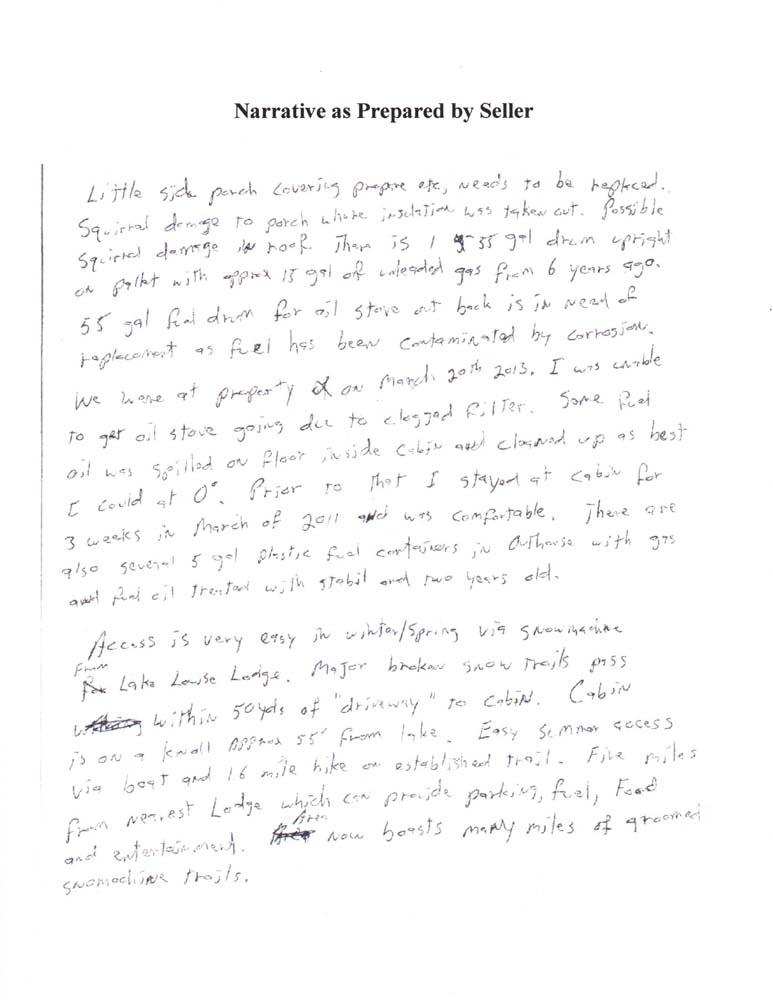 Narrative as Prepared by Seller
Little side porch covering propane etc, needs to be replaced.
Squirrel damage to porch where insulation was taken out. Possible
Squirrel damage in roof. There is 1 55 gal drum upright
on pallet with approx 15 gal of unleaded gas from 6 years ago.
55 gal fuel drum for oil stove out back is in need of
replacement as fuel has been contaminated by corrosion.
We were at property on March 20th 2013. I was unable
to get oil stove going due to clogged filter. Some fuel
oil was spilled on floor inside cabin and cleaned up as best
I could at 0°. Prior to that I stayed at cabin for
3 weeks in March of 2011 and was comfortable. There are
also several 5 gal plastic fuel containers in Outhouse with gas
and fuel oil treated with stabil and two years old.
Access is very easy in winter/spring via snowmachine
From Lake Louise Lodge. Major broken snow trails pass
within 50yds of "driveway" to cabin. Cabin
is on a knoll Approx 55' from lake. Easy summer access
via boat and 1.6 mile hike on established trail. Five miles
from nearest Lodge which can provide parking, fuel, Food
and entertainment. Area now boasts many miles of groomed
snomachine trails.